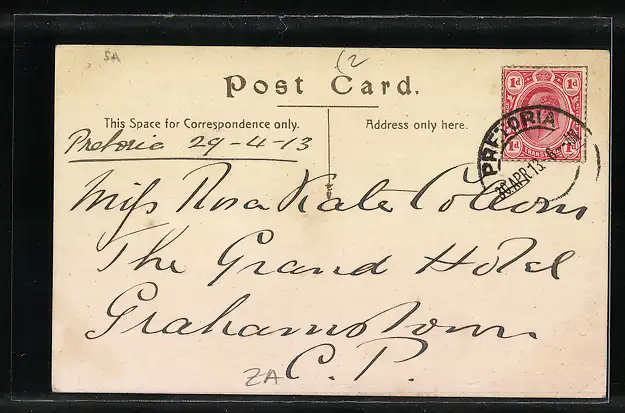 SA
(2
Post Card.
This Space for Correspondence only.
Address only here.
Pretoria 29-4-13
1d 1d
1d 1d
TRANSVAAL
PRETORIA
30 APR 13
Miss Rosa Kate Collins
The Grand Hotel
Grahamstown
C. P.
ZA